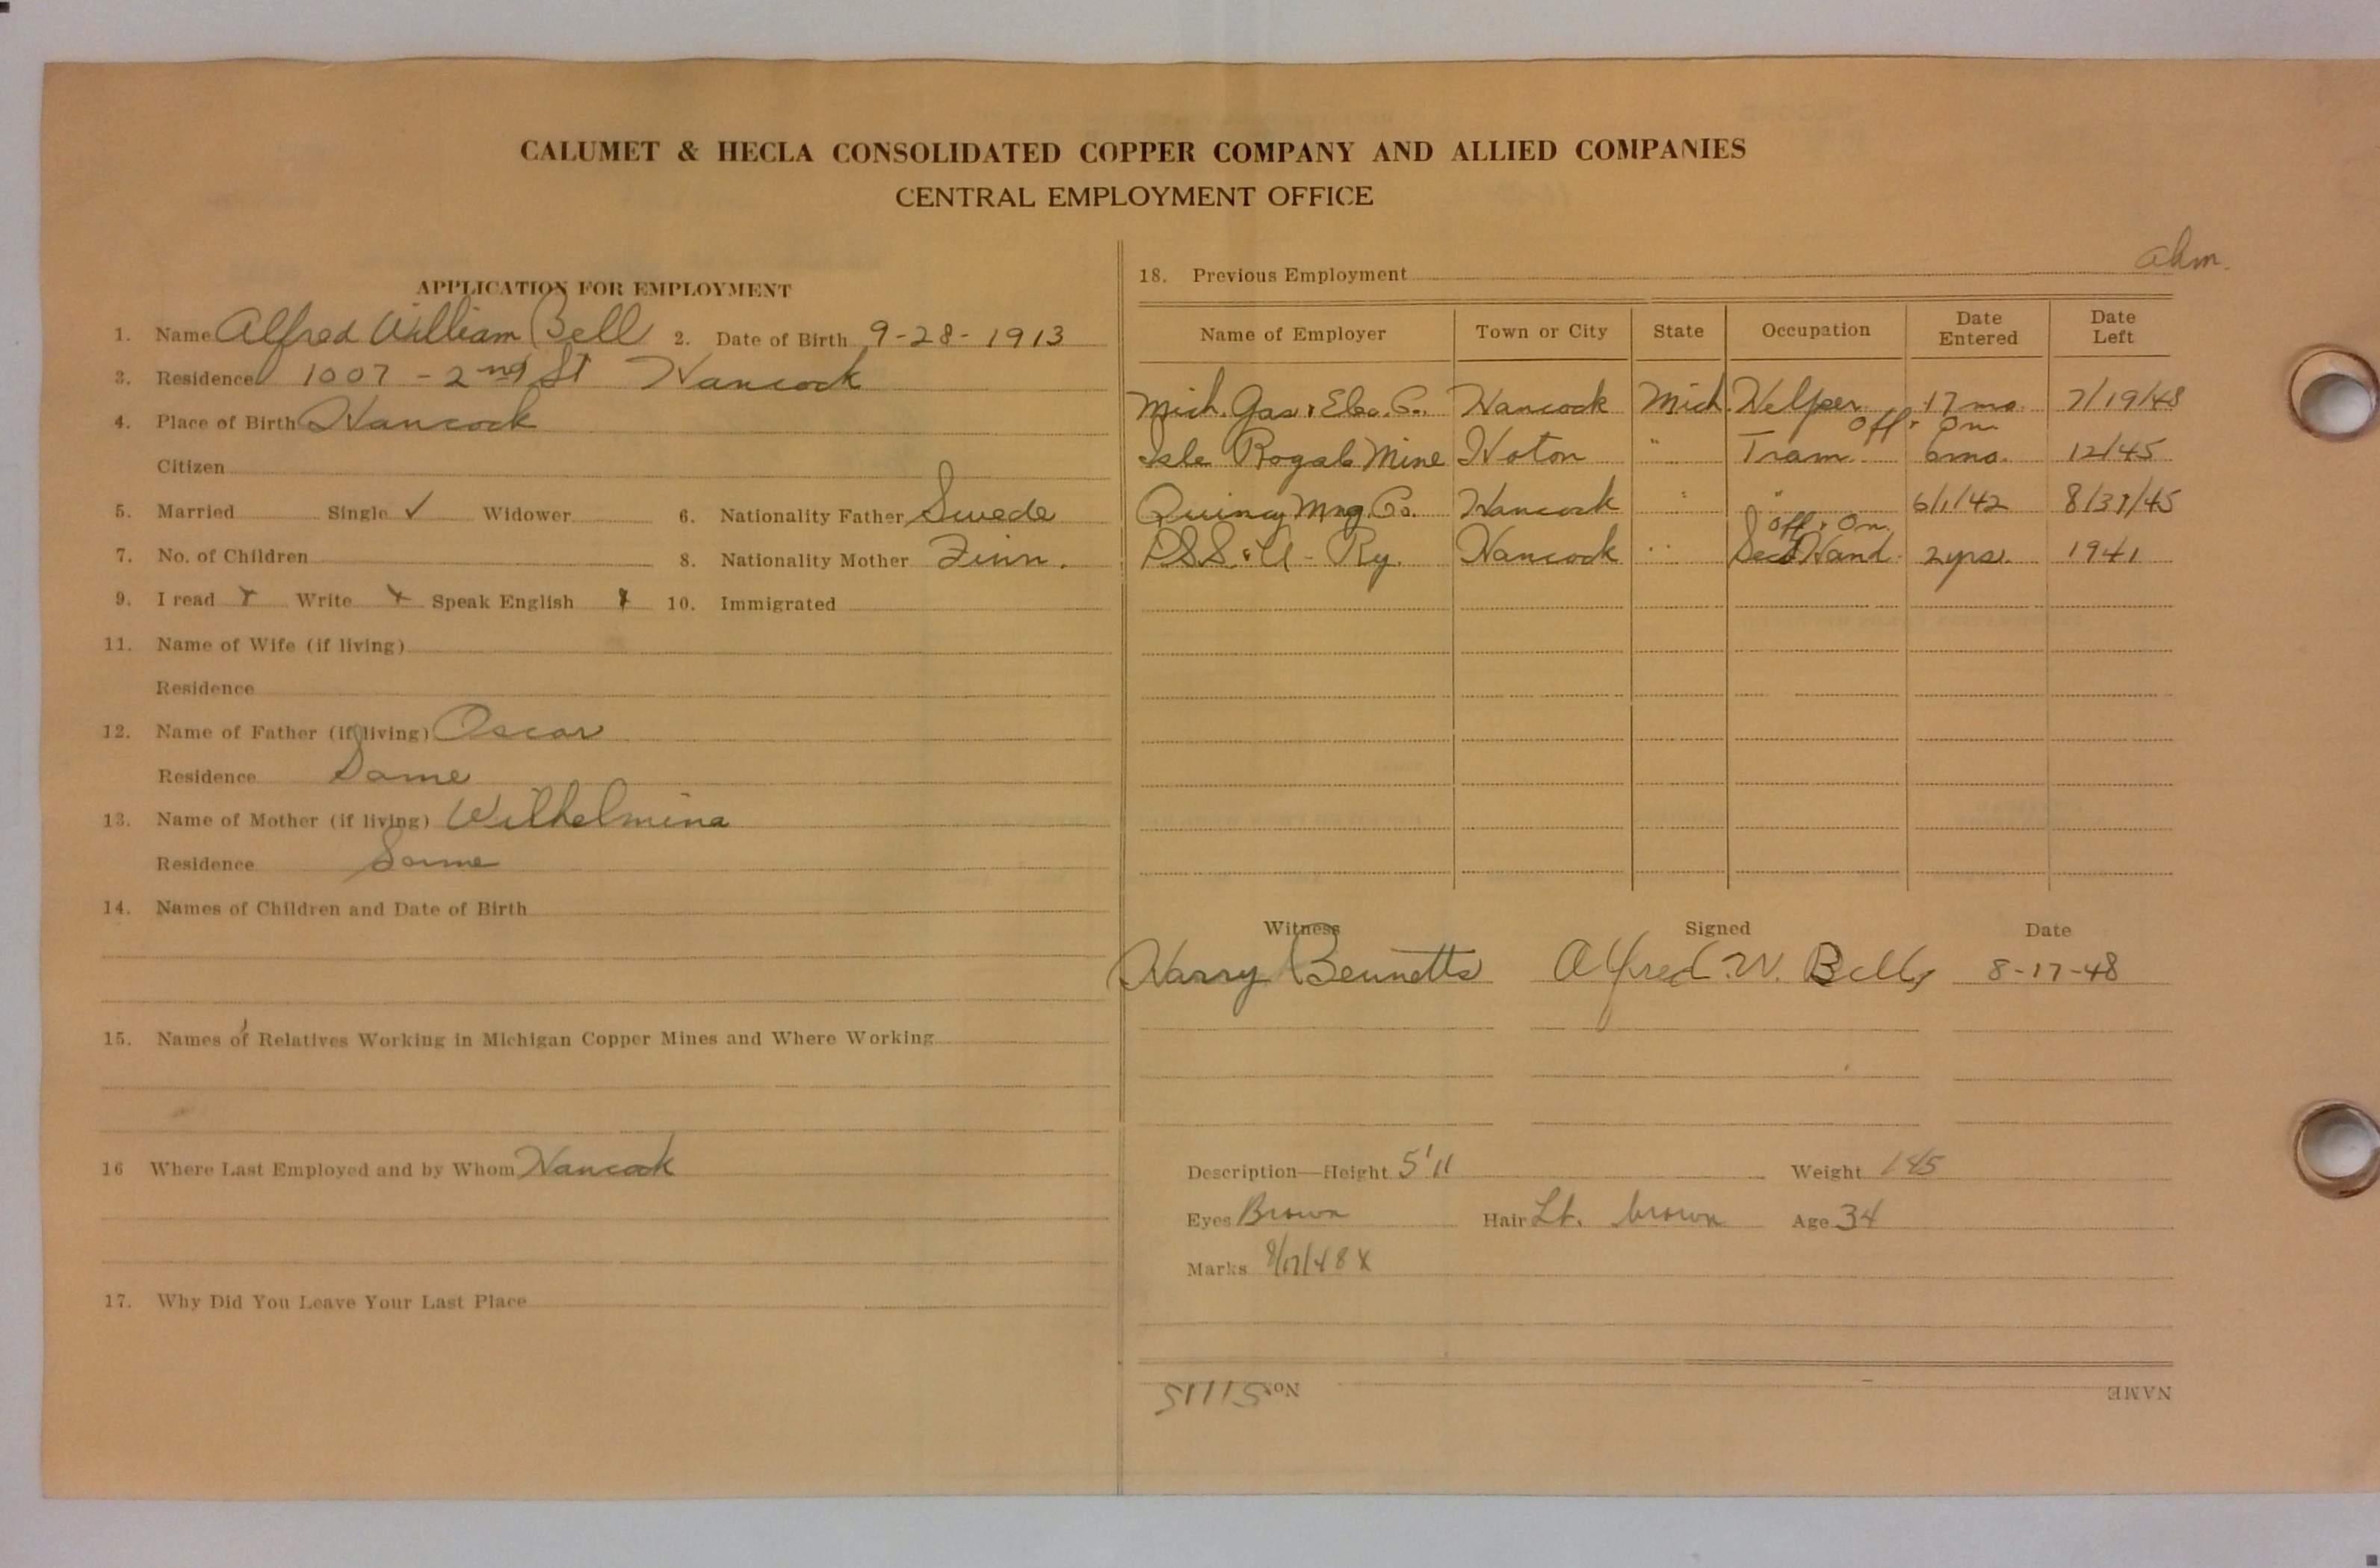 CALUMET & HECLA CONSOLIDATED COPPER COMPANY AND ALLIED COMPANIES
CENTRAL EMPLOYMENT OFFICE
APPLICATION FOR EMPLOYMENT
1. Name Alfred William Bell 2. Date of Birth 9-28-1913
3. Residence 1007 - 2nd St Hancock
4. Place of Birth Hancock
Citizen
5. Married Single ✓ Widower 6. Nationality Father Swede
7. No. of Children 8. Nationality Mother Finn.
9. I read x Write x Speak English x 10. Immigrated
11. Name of Wife (if living)
Residence
12. Name of Father (if living) Oscar
Residence Same
13. Name of Mother (if living) Wilhelmina
Residence Same
14. Names of Children and Date of Birth
15. Names of Relatives Working in Michigan Copper Mines and Where Working
16 Where Last Employed and by Whom Hancock
17. Why Did You Leave Your Last Place
18. Previous Employment
Name of Employer Town or City State Occupation Date Entered Date Left
Mich. Gas & Elec. Co. Hancock Mich. Helper 17 mo. 7/19/48
Off & On
Isle Royale Mine Hoton " Tram 6 mo. 12/45
Quincy Mng Co. Hancock " " 6/1/42 8/31/45
Off & On
D.S.S. & A - Ry. Hancock " Sec Hand 2 yrs. 1941
Witness Signed Date
Harry Bennetts Alfred W. Bell 8-17-48
Description—Height 5'11 Weight 145
Eyes Brown Hair Lt. brown Age 34
Marks 8/17/48 X
No. 51115
NAME